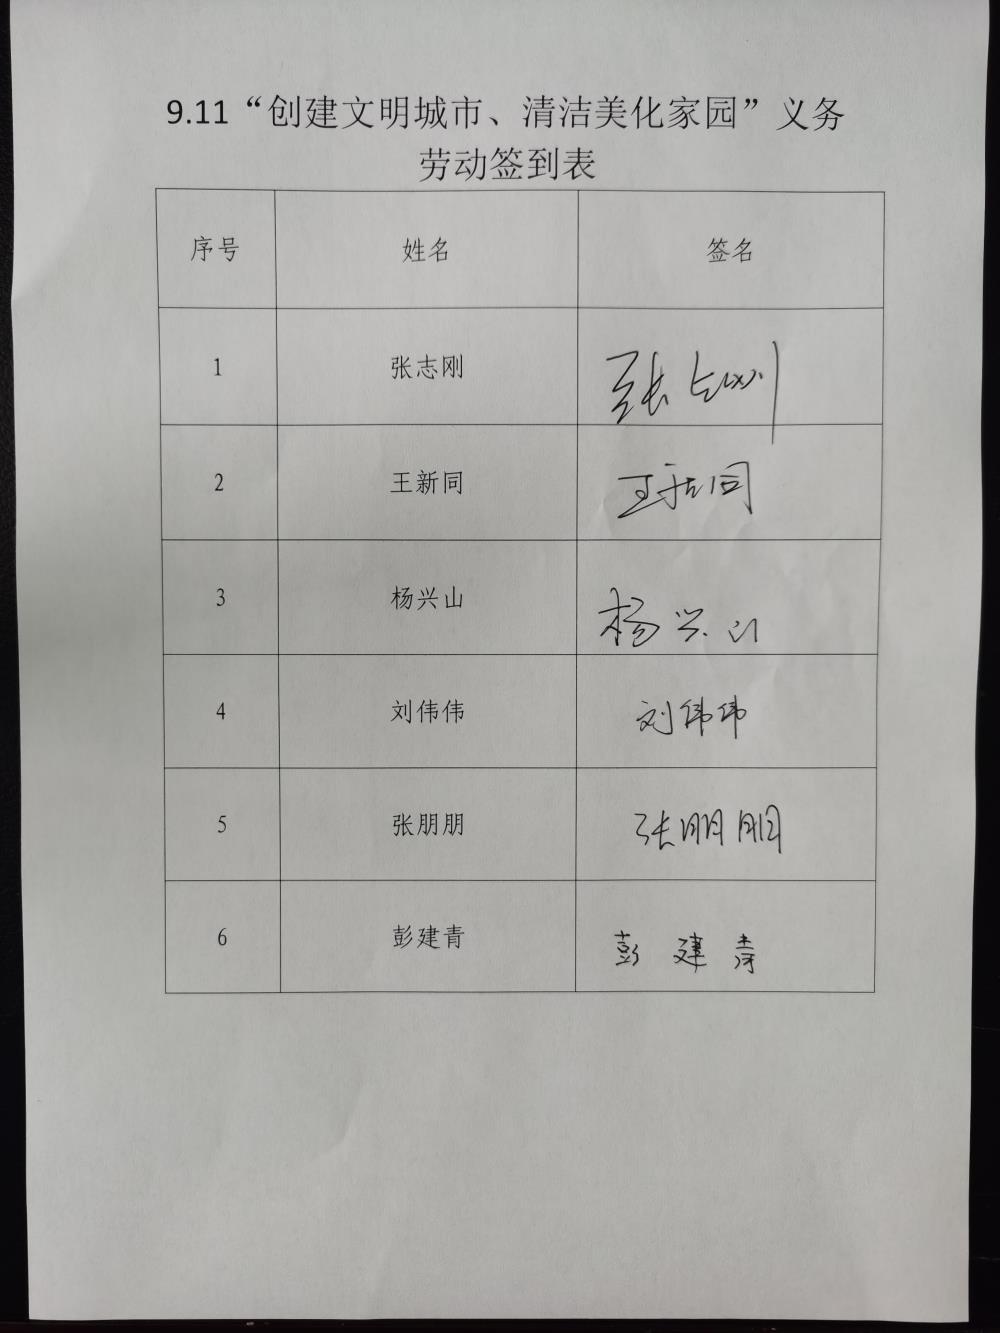 9.11“创建文明城市、清洁美化家园”义务
劳动签到表
序号 姓名 签名
1 张志刚 张志刚
2 王新同 王新同
3 杨兴山 杨兴山
4 刘伟伟 刘伟伟
5 张朋朋 张朋朋
6 彭建青 彭建青